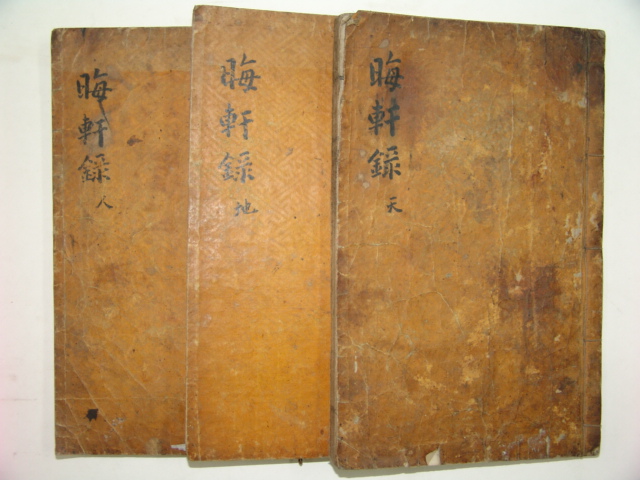 晦軒錄 天
晦軒錄 地
晦軒錄 人